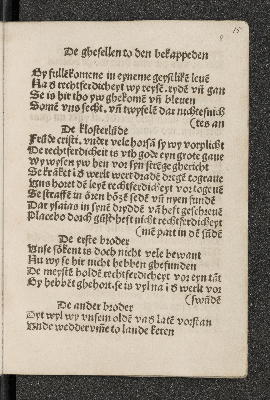 15
De ghesellen to den bekappeden
Gy fullēkomene in eyneme geystlikē levē
Na d̄ rechtferdicheyt wy reysē, rydē vn̄ gan
Se is hir tho yw ghekomē vn̄ bleven
Somē vns secht, vn̄ twyfelē dar nichtes nich
(tes an
De klosterlüde
Frūde cristi, vnder vele hossā sy wy vorplicht
De rechtferdicheit is vth gode eyn grote gave
Wy wysen yw hen vor syn strēge ghericht
Se krākēt is werlt wert dradē drēgē to grave
Vns hort dē leyē rechtferdicheyt vor to gevē
Se straffē in ören bözē sedē vn̄ nyen fundē
Dar ysaias in synē dryddē vā heft geschrevē
Placebo dorch gūst heft nicht rechtferdicheyt
(mē part in dē sūdē
De erste broder
Vnse sökent is doch nicht vele bewant
Nu wy se hir nicht hebben ghefunden
De meystē holdē rechtferdicheyt vor eyn tāt
Gy hebbēt ghehort, se is vyl na is werlt vor
(swūdē
De ander broder
Dyt wyl wy vnsem oldē vad latē vorstan
Vnde wedder vm̄e to lande keren